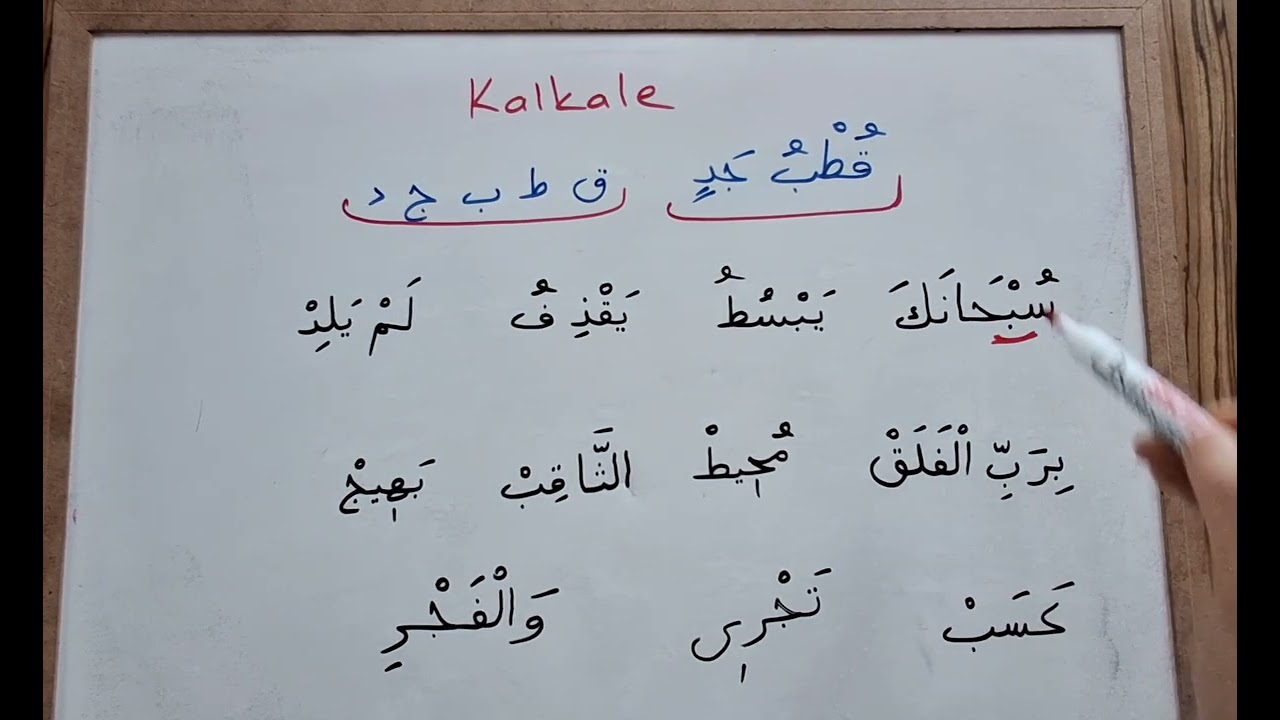 Kalkale
قُطْبُ جَدٍ ق ط ب ج د
سُبْحَانَكَ يَبْسُطُ يَقْذِفُ لَمْ يَلِدْ
بِرَبِّ الْفَلَقْ مُحٖيطْ الثَّاقِبْ بَهٖيجْ
كَسَبْ تَجْرٖى وَالْفَجْرِ